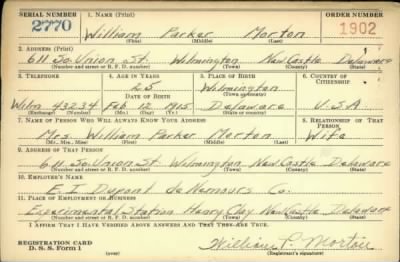 SERIAL NUMBER 1. NAME (Print) ORDER NUMBER
2770 William Parker Morton 1902
(First) (Middle) (Last)
2. ADDRESS (Print)
611 So. Union St. Wilmington New Castle Delaware
(Number and street or R. F. D. number) (Town) (County) (State)
3. TELEPHONE 4. AGE IN YEARS 5. PLACE OF BIRTH 6. COUNTRY OF CITIZENSHIP
25 Wilmington
DATE OF BIRTH (Town or county)
Wilm 43234 Feb 12 1915 Delaware U.S.A.
(Exchange) (Number) (Mo.) (Day) (Yr.) (State or country)
7. NAME OF PERSON WHO WILL ALWAYS KNOW YOUR ADDRESS 8. RELATIONSHIP OF THAT PERSON
Mrs. William Parker Morton Wife
(Mr., Mrs., Miss) (First) (Middle) (Last)
9. ADDRESS OF THAT PERSON
611 So. Union St. Wilmington New Castle Delaware
(Number and street or R. F. D. number) (Town) (County) (State)
10. EMPLOYER'S NAME
E. I. Dupont de Nemours Co.
11. PLACE OF EMPLOYMENT OR BUSINESS
Experimental Station Henry Clay New Castle Delaware
(Number and street or R. F. D. number) (Town) (County) (State)
I AFFIRM THAT I HAVE VERIFIED ABOVE ANSWERS AND THAT THEY ARE TRUE.
REGISTRATION CARD
D. S. S. Form 1 William P. Morton
(over) (Registrant's signature)